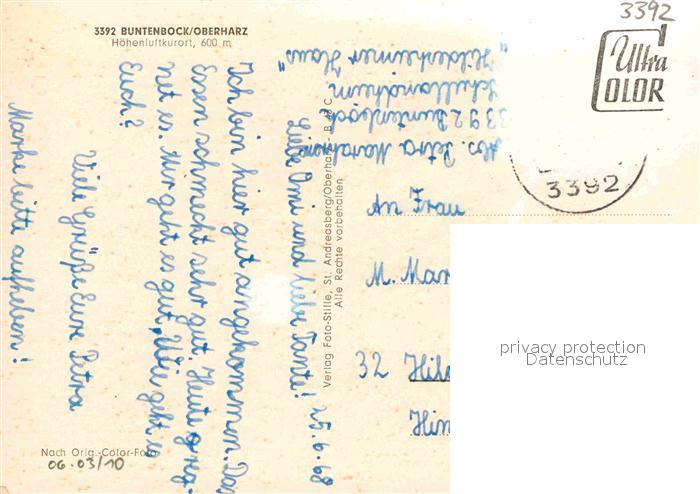 3392 BUNTENBOCK/OBERHARZ
Höhenluftkurort, 600 m
3392
Ultra
COLOR
3392
Abs. Petra
3392 Buntenbock
Schullandheim
"Hildesheimer Haus"
Liebe Omi und liebe Tante! 25.6.68
Ich bin hier gut angekommen. Das
Essen schmeckt sehr gut. Heute reg-
net es. Mir geht es gut, Wie geht es
Euch?
Viele Grüße Eure Petra
Marke bitte aufheben!
Verlag Foto-Stille, St. Andreasberg/Oberharz
Alle Rechte vorbehalten
An Frau
M. Mar
32 Hild
Him
privacy protection
Datenschutz
Nach Orig.-Color-Foto
06.03/10